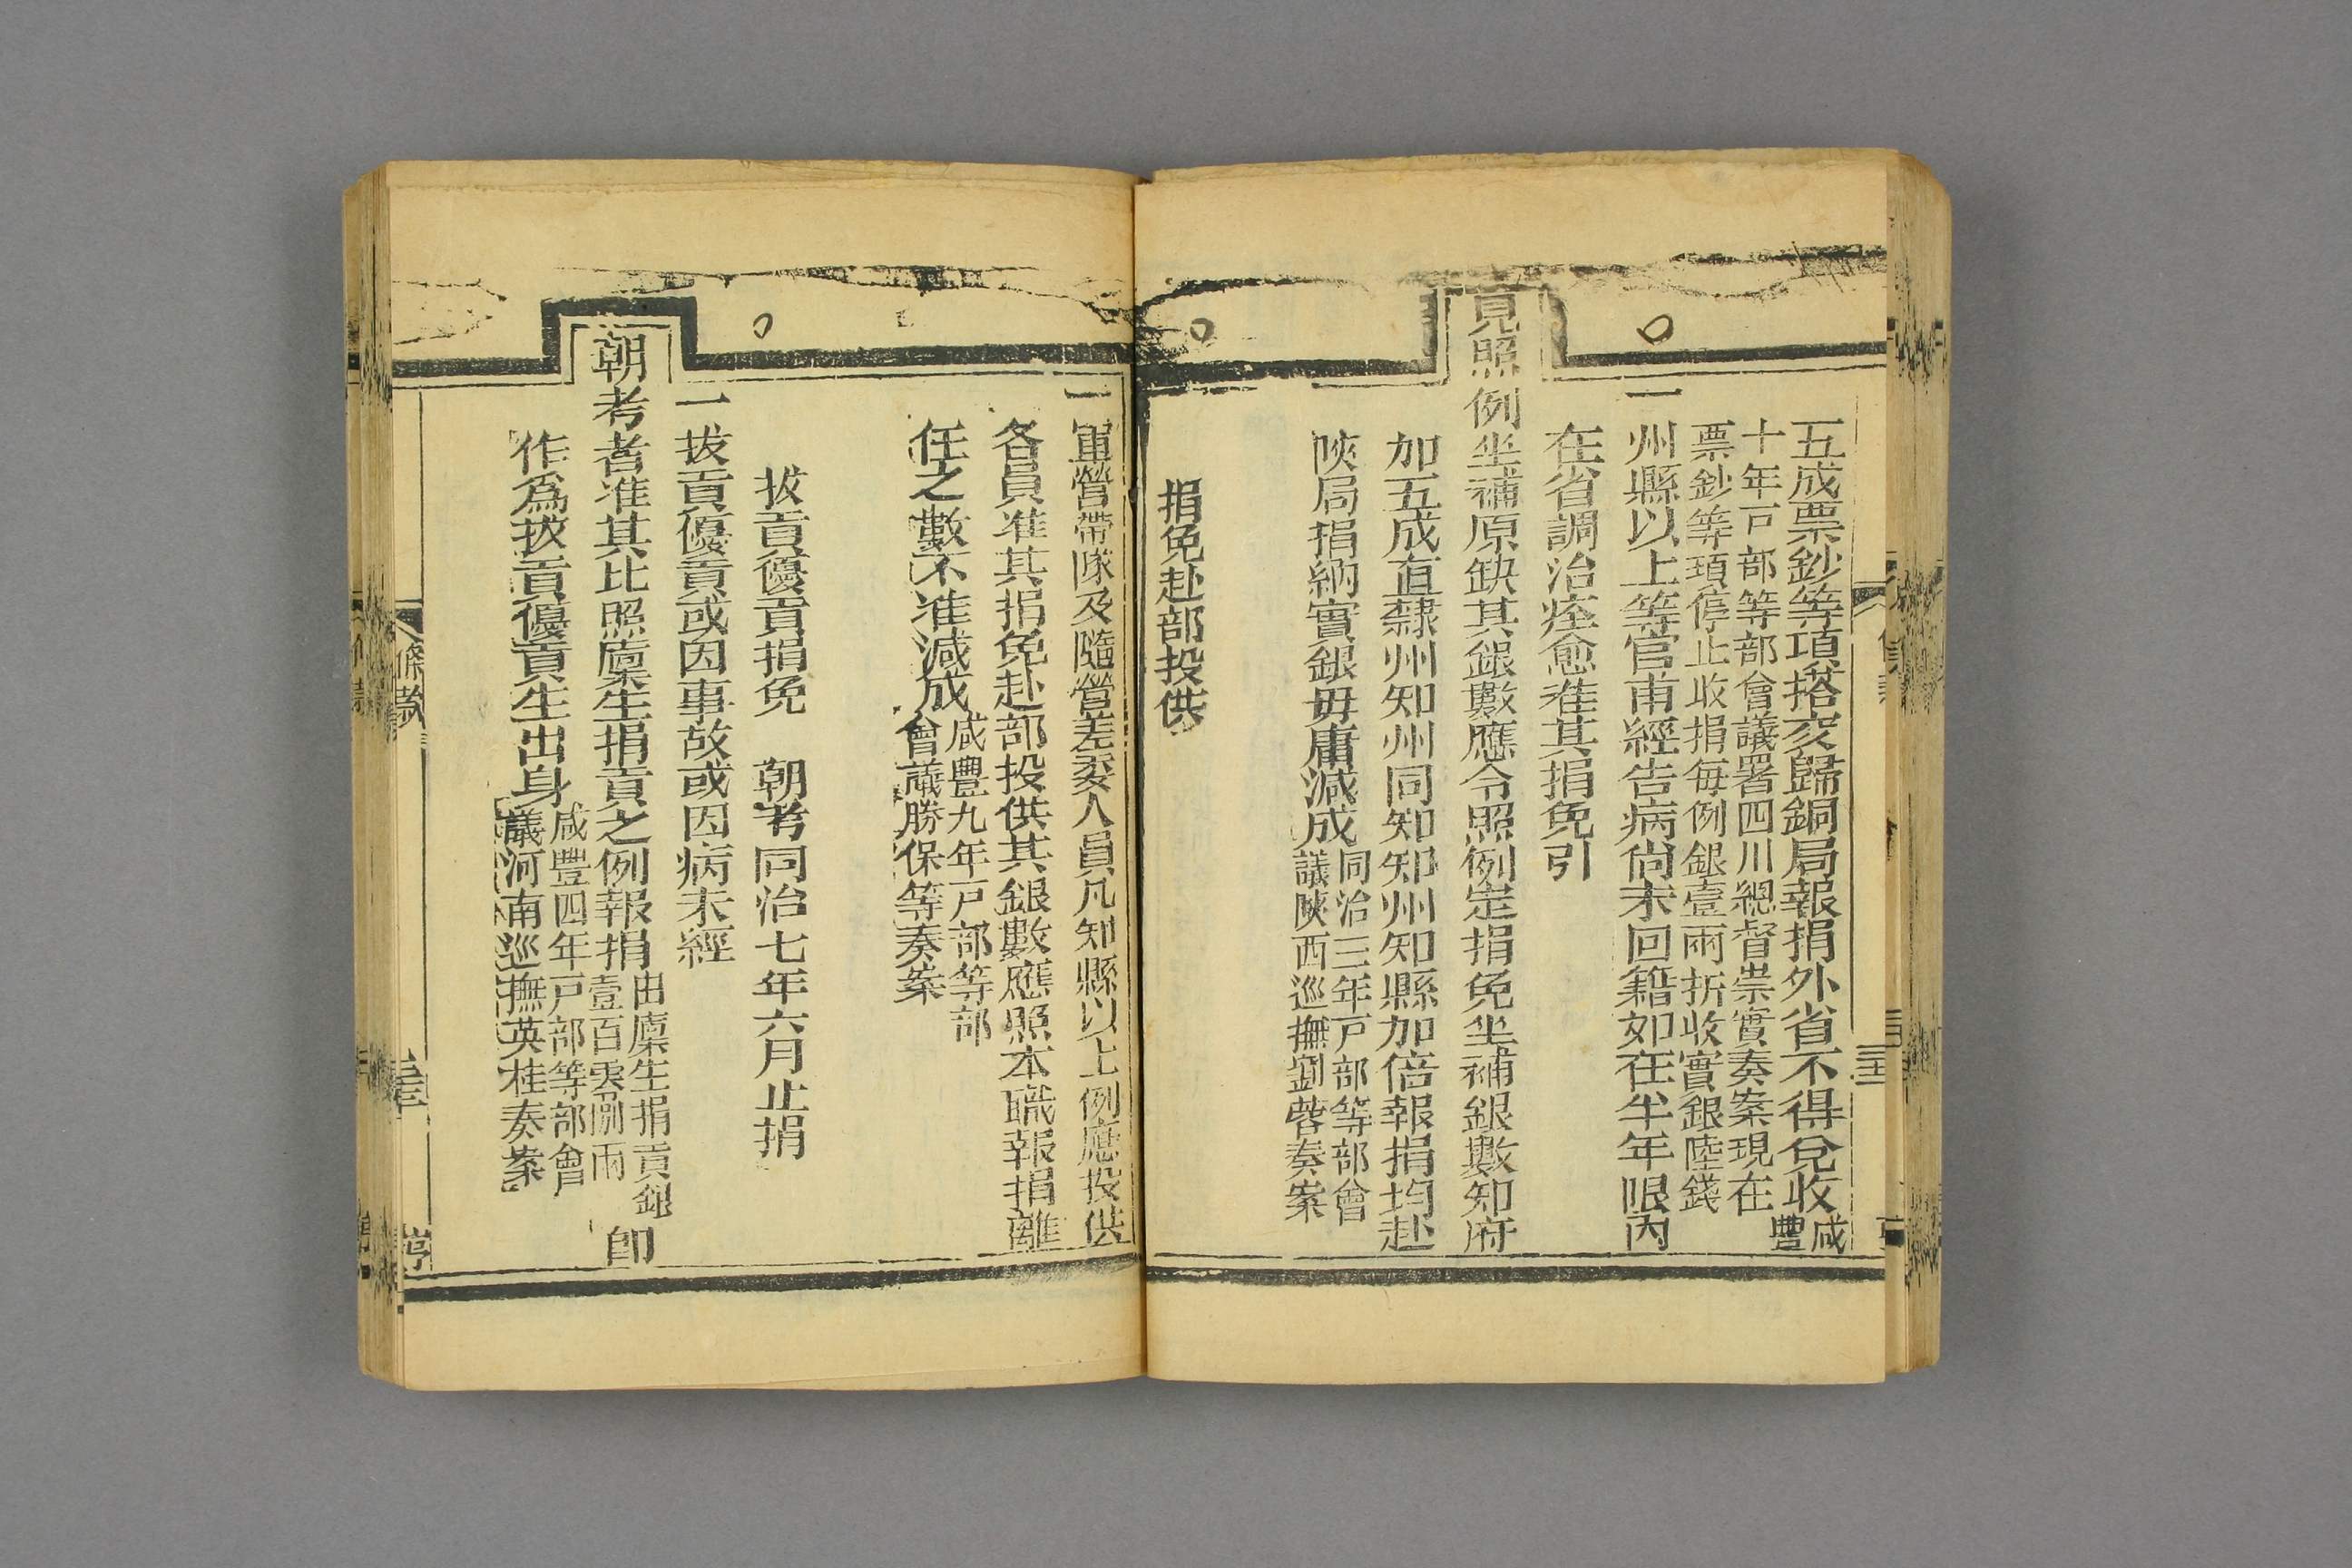 五成票鈔等項搭交歸銅局報捐外省不得兌收咸豐
十年戸部等部會議署四川總督崇實奏案現在
票鈔等項停止收捐每例銀壹兩折收實銀陸錢
一州縣以上等官甫經告病尚未回籍如在半年限內
在省調治痊愈准其捐免引
見照例坐補原缺其銀數應令照例定捐免坐補銀數知府
加五成直隸州知州同知知州知縣加倍報捐均赴
陝局捐納實銀毋庸減成
同治三年戸部等部會
議陝西巡撫劉蓉奏案
捐免赴部投供
一軍營帶隊及隨營差委人員凡知縣以上例應投供
各員准其捐免赴部投供其銀數應照本職報捐離
任之數不准減成
咸豐九年戸部等部
會議勝保等奏案
拔貢優貢捐免　朝考同治七年六月止捐
一拔貢優貢或因事故或因病未經
朝考者准其比照廩生捐貢之例報捐
由廩生捐貢銀
壹百零捌兩
即
作爲拔貢優貢生出身
咸豐四年戸部等部會
議河南巡撫英桂奏案
條款